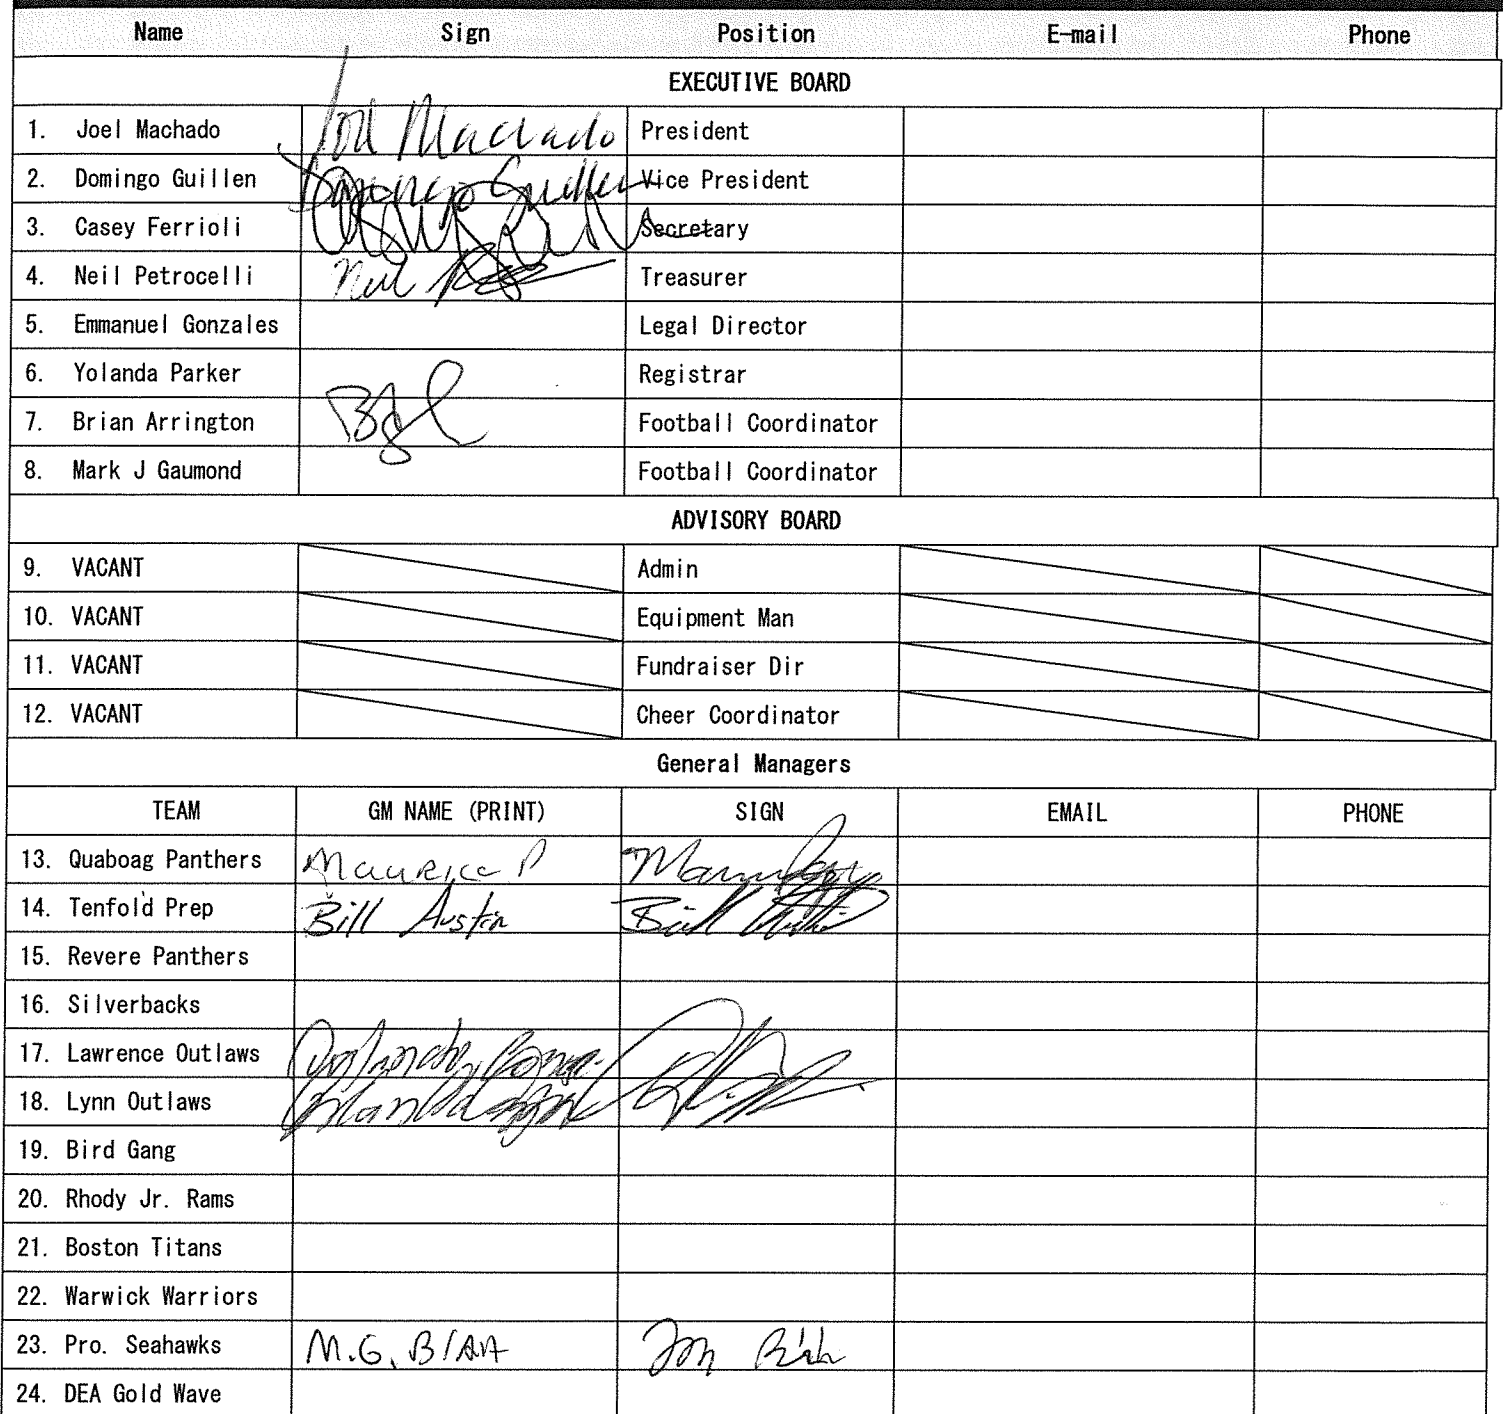 Name Sign Position E-mail Phone
EXECUTIVE BOARD
1. Joel Machado Joel Machado President
2. Domingo Guillen Domingo Guillen Vice President
3. Casey Ferrioli Secretary
4. Neil Petrocelli Neil Treasurer
5. Emmanuel Gonzales Legal Director
6. Yolanda Parker Registrar
7. Brian Arrington Football Coordinator
8. Mark J Gaumond Football Coordinator
ADVISORY BOARD
9. VACANT Admin
10. VACANT Equipment Man
11. VACANT Fundraiser Dir
12. VACANT Cheer Coordinator
General Managers
TEAM GM NAME (PRINT) SIGN EMAIL PHONE
13. Quaboag Panthers Maurice P
14. Tenfold Prep Bill Austin Bill Austin
15. Revere Panthers
16. Silverbacks
17. Lawrence Outlaws
18. Lynn Outlaws
19. Bird Gang
20. Rhody Jr. Rams
21. Boston Titans
22. Warwick Warriors
23. Pro. Seahawks M.G.
24. DEA Gold Wave